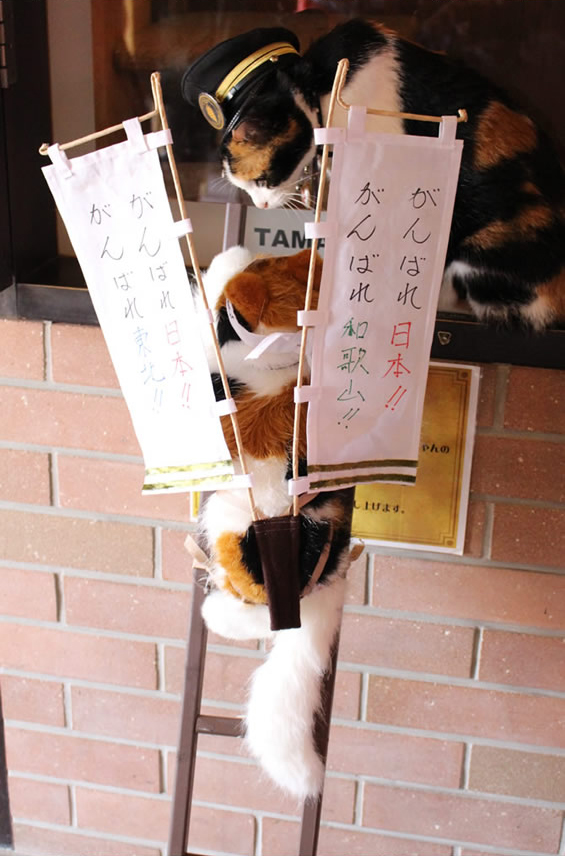 がんばれ日本!!
がんばれ東北!!
TAM
がんばれ日本!!
がんばれ和歌山!!
ゃんの
し上げます。